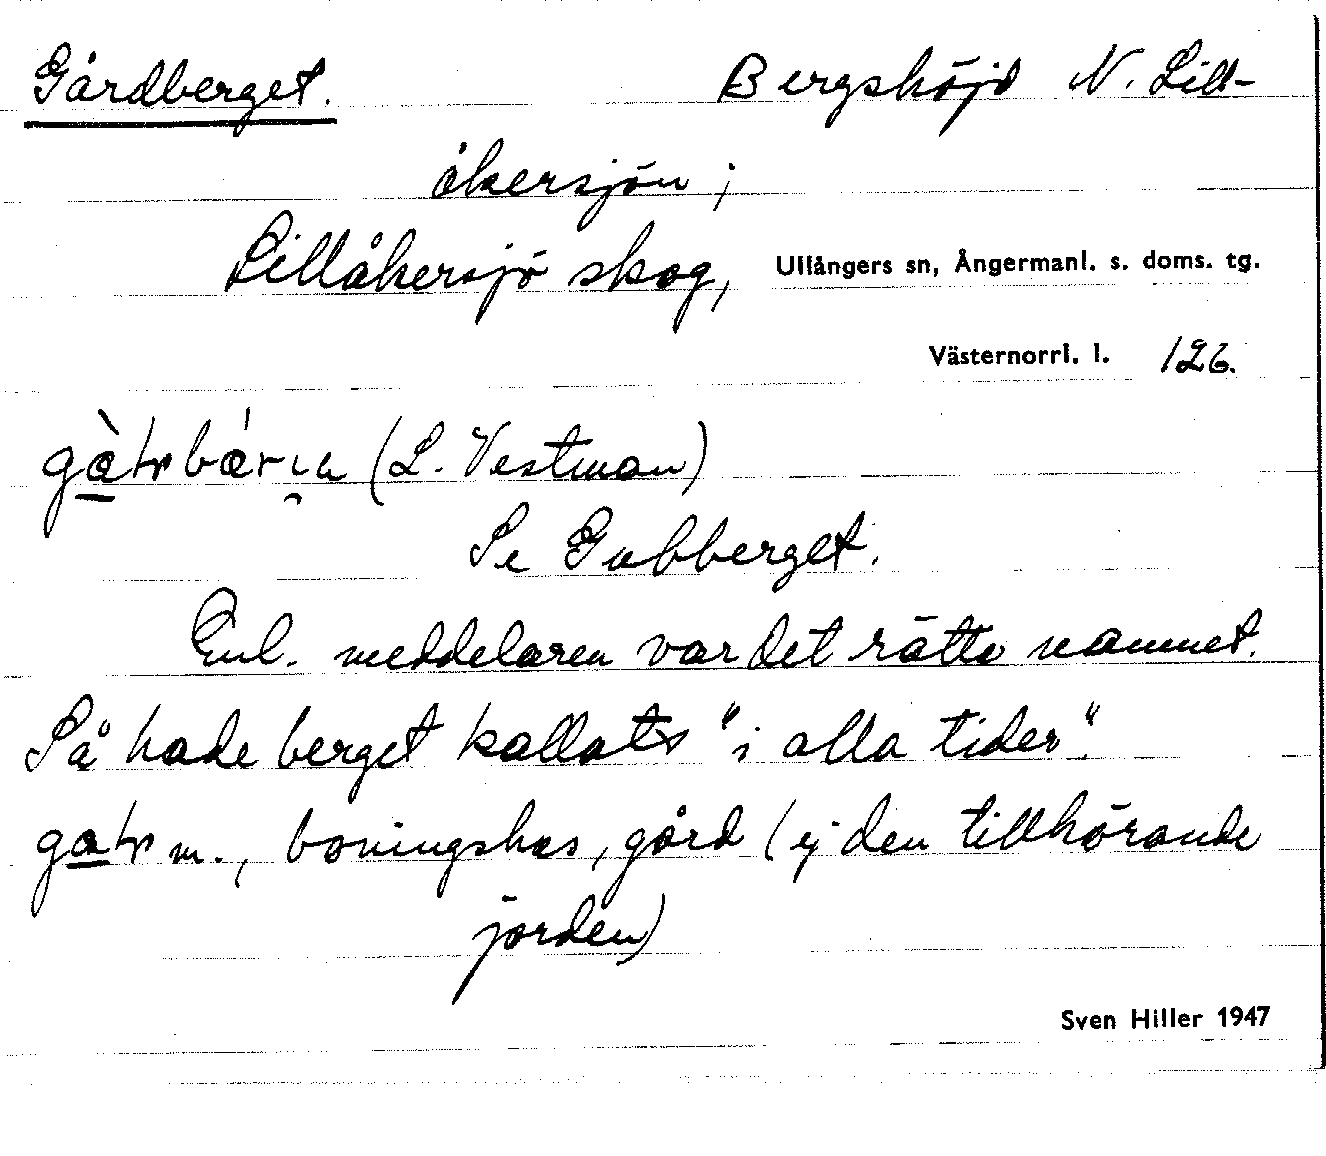 Gårdberget. Bergshöjd N. Lill-
åkersjön;
Lillåkersjö skog, Ullångers sn, Ångermanl. s. doms. tg.
Västernorrl. l. 126.
(L. Vestman)
Se Gubberget.
Enl. meddelaren var det rätta namnet.
Så hade berget kallats "i alla tider".
m., boningshus, gård (ej den tillhörande
jorden)
Sven Hiller 1947